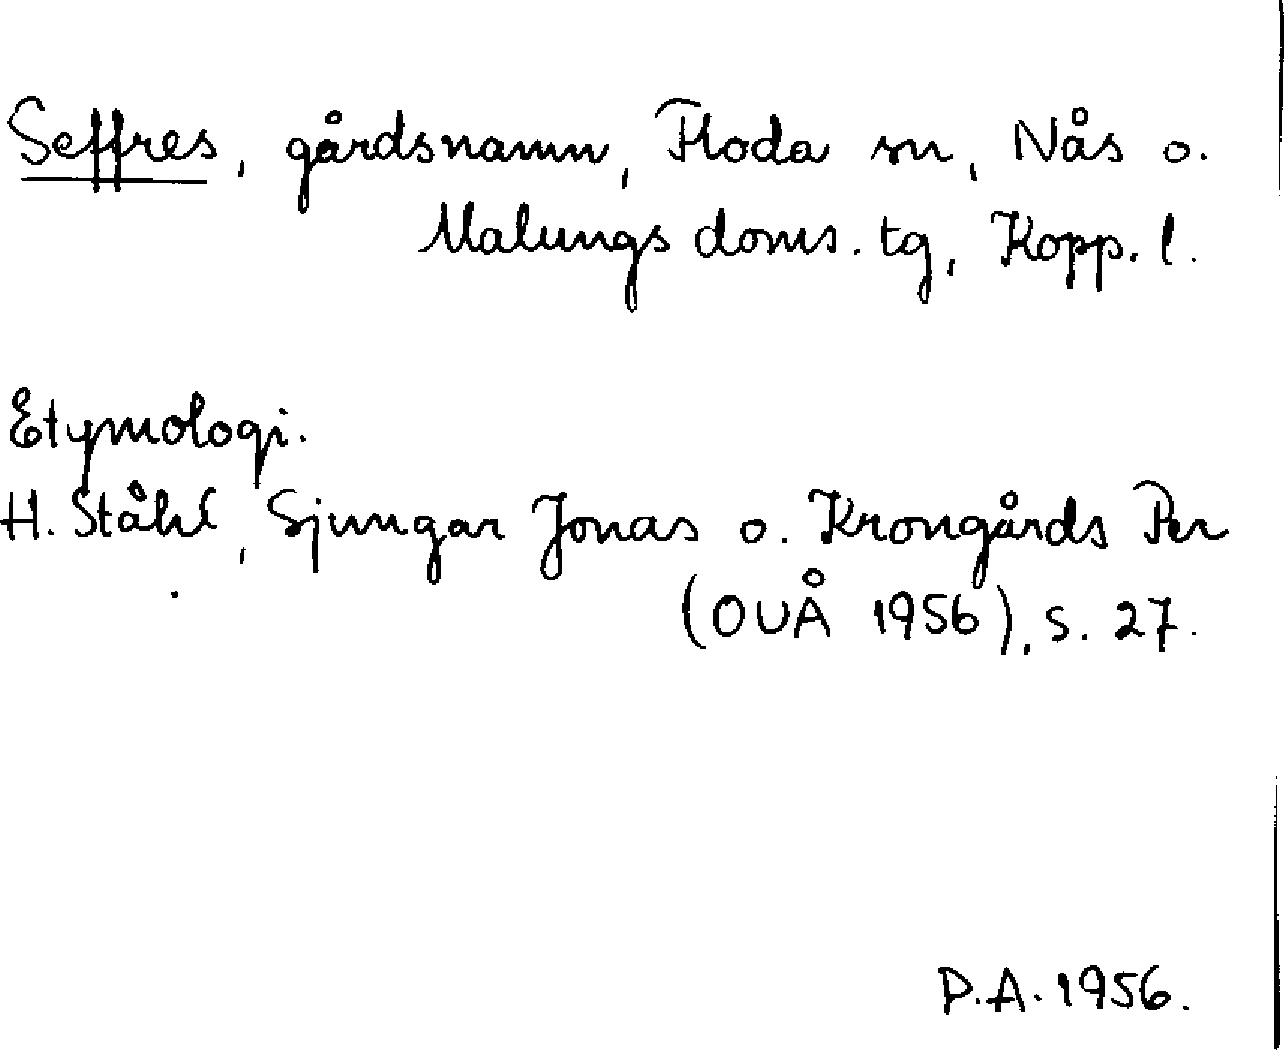 Seffres, gårdsnamn, Floda sn, Nås o.
Malungs doms. tg, Kopp. l.
Etymologi.
H. Ståhl, Sjungar Jonas o. Krongårds Per
(OUÅ 1956), s. 27.
P.A. 1956.